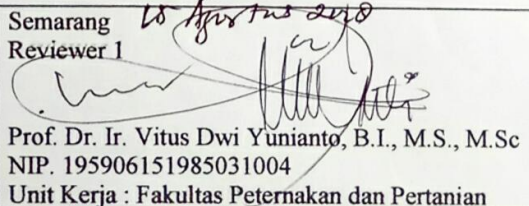 Semarang 15 Agustus 2018
Reviewer 1
Prof. Dr. Ir. Vitus Dwi Yunianto, B.I., M.S., M.Sc
NIP. 195906151985031004
Unit Kerja : Fakultas Peternakan dan Pertanian